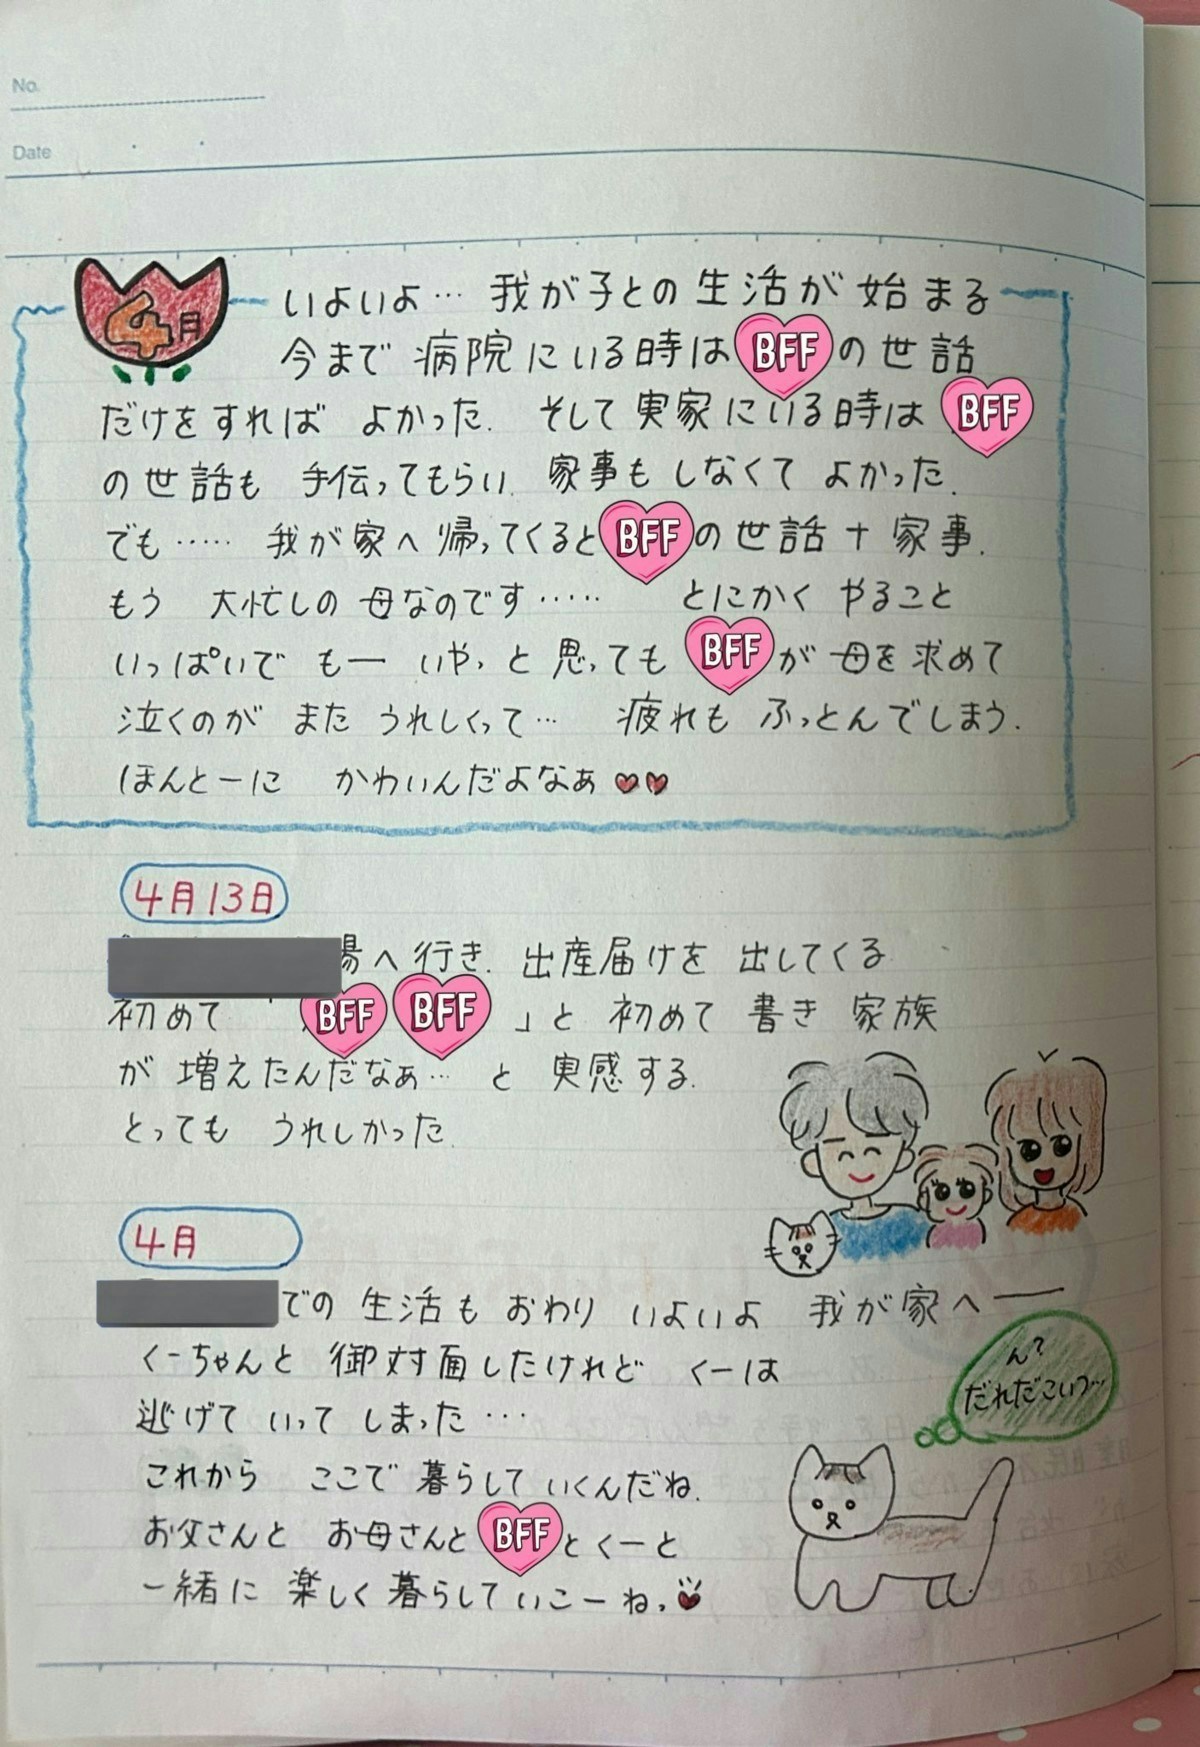 No.
Date
4月
いよいよ… 我が子との生活が始まる
今まで 病院にいる時はBFFの世話
だけをすれば よかった. そして 実家にいる時は BFF
の世話も 手伝ってもらい. 家事も しなくて よかった.
でも…… 我が家へ帰ってくるとBFFの世話+家事.
もう 大忙しの 母なのです…… とにかく やること
いっぱいで もー いやっと思っても BFFが母を求めて
泣くのが また うれしくって… 疲れも ふっとんでしまう.
ほんとーに かわいんだよなぁ
4月13日
場へ行き. 出産届けを 出してくる
初めて 「BFF BFF 」と 初めて 書き 家族
が 増えたんだなぁ… と 実感する.
とっても うれしかった.
4月
での 生活も おわり いよいよ 我が家へー
くーちゃんと 御対面したけれど くーは
逃げて いって しまった…
これから ここで 暮らして いくんだね.
お父さんと お母さんと BFFとくーと
一緒に 楽しく 暮らしていこーね.
ん?
だれだこいつ…